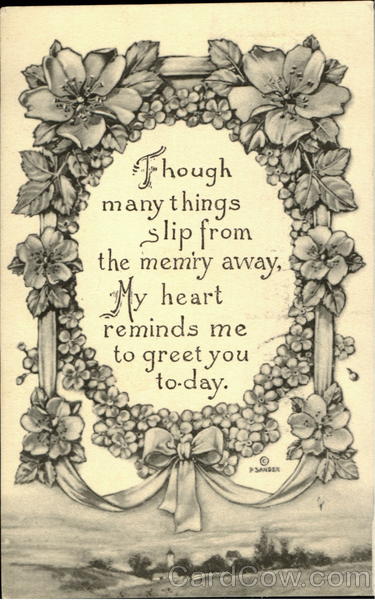 Though
many things
slip from
the mem'ry away,
My heart
reminds me
to greet you
to-day.
©
P SANDER
CardCow.com